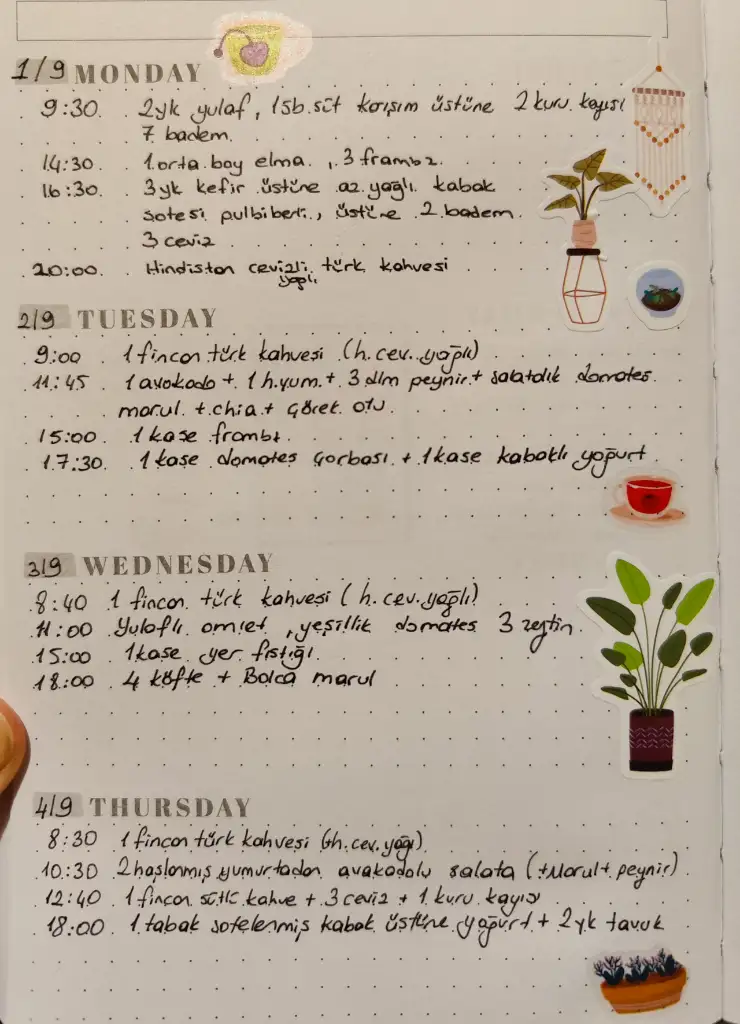 1/9 MONDAY
9:30 2yk yulaf, 1 sb. süt karışım üstüne 2 kuru kayısı
7 badem
14:30 1 orta boy elma, 3 frambz.
16:30 3yk kefir üstüne az yağlı kabak
sotesi pulbiberli, üstüne 2 badem
3 ceviz
20:00 Hindistan cevizli türk kahvesi
yağlı
2/9 TUESDAY
9:00 1 fincan türk kahvesi (h. cev. yağlı)
11:45 1 avokado + 1 h.yum. + 3 dlm peynir + salatalık domates
marul + chia + çörek otu
15:00 1 kase frambz.
17:30 1 kase domates çorbası + 1 kase kabaklı yoğurt
3/9 WEDNESDAY
8:40 1 fincan türk kahvesi (h. cev. yağlı)
11:00 Yulaflı omlet, yeşillik domates 3 zeytin
15:00 1 kase yer fıstığı
18:00 4 köfte + Bolca marul
4/9 THURSDAY
8:30 1 fincan türk kahvesi (h. cev. yağı)
10:30 2 haşlanmış yumurtadan avakadolu salata (+Marul+ peynir)
12:40 1 fincan sütlü kahve + 3 ceviz + 1 kuru kayısı
18:00 1 tabak sotelenmiş kabak üstüne yoğurt + 2 yk tavuk